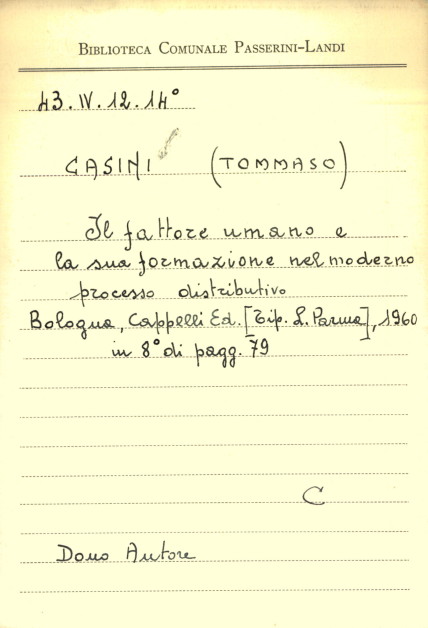 BIBLIOTECA COMUNALE PASSERINI-LANDI
43. IV. 12. 14°
CASINI (TOMMASO)
Il fattore umano e
la sua formazione nel moderno
processo distributivo
Bologna, Cappelli Ed. [Tip. L. Parma], 1960
in 8° di pagg. 79
C
Dono Autore